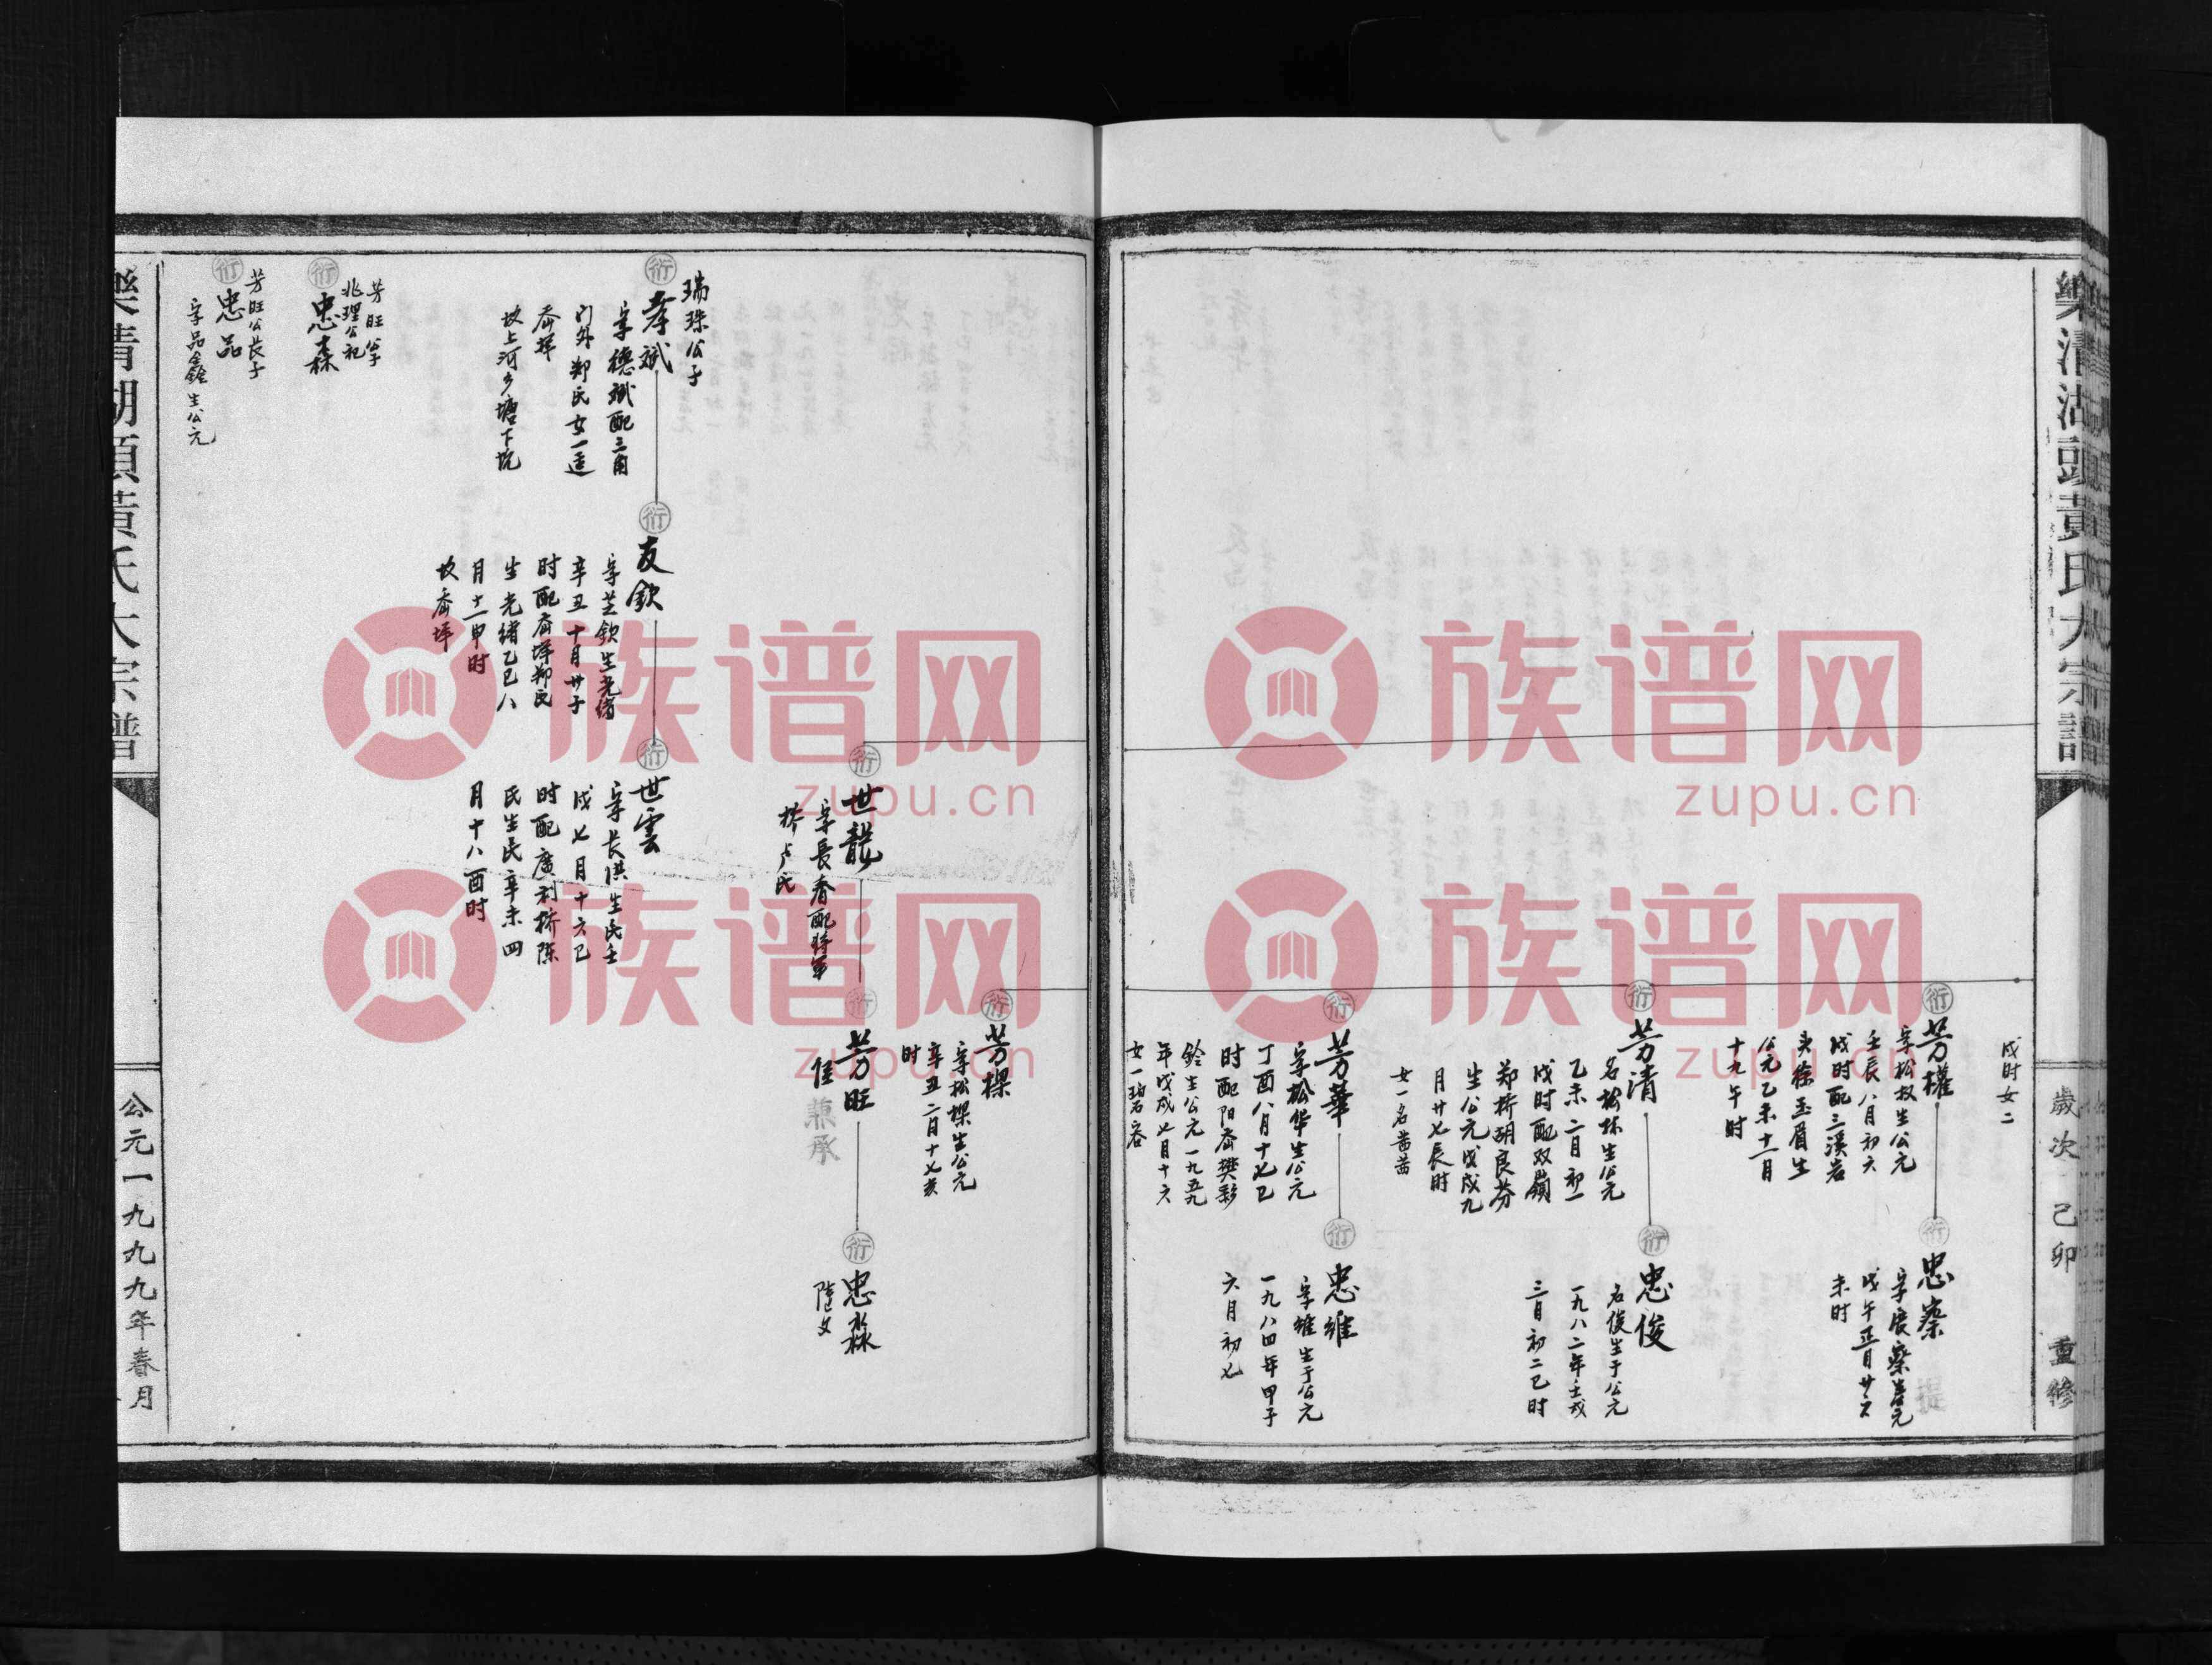 樂清湖頭黃氏大宗譜
歲次己卯重修
戌时女二
衍
芳權
字松权生公元
壬辰八月初六
戌时配三溪岩
头徐玉眉生
公元乙未十二月
十九午时
衍
忠察
字展察生公元
戊午正月廿六
未时
提
衍
芳清
名松林生公元
乙未二月初一
戌时配双嶺
郑桥胡良芬
生公元戊戌九
月廿七辰时
女一名茜茜
衍
忠俊
名俊生于公元
一九八二年壬戌
三月初二巳时
衍
芳華
字松华生公元
丁酉八月十七巳
时配阳岙樊彩
鈴生公元一九五九
年戊戌七月十六
女一碧容
衍
忠維
字維生于公元
一九八四年甲子
六月初七
族谱网
zupu.cn
族谱网
zupu.cn
衍
芳樑
字松樑生公元
辛丑二月十七亥
时
衍
世龍
字長春配将軍
桥卢氏
衍
芳旺
佳
兼承
衍
忠淼
陸文
瑞珠公子
衍
孝斌
字德斌配三角
门外郑氏女一适
岙坪
坟上河乡塘下坑
衍
友欽
字芝欽生光绪
辛丑十月廿子
时配岙坪郑氏
生光绪乙巳八
月十二申时
坟岙坪
衍
世雲
字长洪生民壬
戌七月十六巳
时配廣利桥陈
氏生民辛未四
月十八酉时
芳旺公子
兆理公祀
衍
忠森
芳旺公長子
衍
忠品
字品鑫生公元
族谱网
zupu.cn
族谱网
zupu.cn
樂清湖頭黃氏大宗譜
公元一九九九年春月